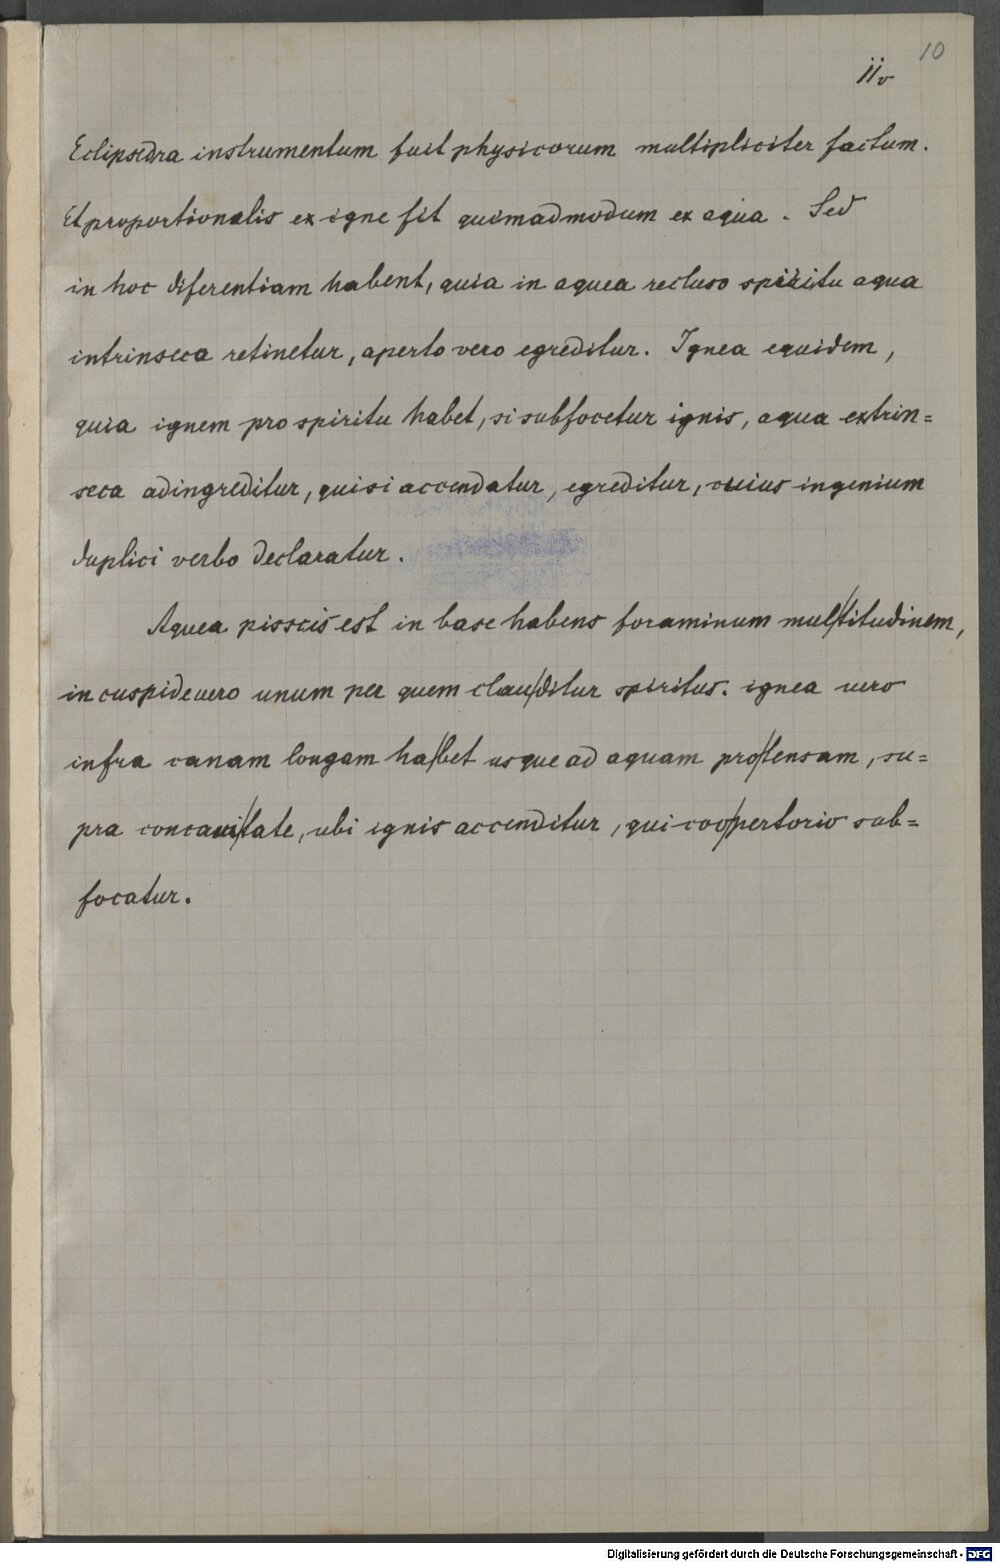 10
iiv
Eclipsedra instrumentum fuit physicorum multipliciter factum.
Et proportionalis ex igne fit quemadmodum ex aqua. Sed
in hoc diferentiam habent, quia in aquea recluso spiritu aqua
intrinseca retinetur, aperto vero egreditur. Ignea equidem,
quia ignem pro spiritu habet, si subfocetur ignis, aqua extrin=
seca adingreditur, qui si accendatur, egreditur, cuius ingenium
duplici verbo declaratur.
Aquea pisscis est in base habens foraminum mul/titudinem,
in cuspide uero unum per quem clau/ditur spiritus. ignea uero
infra canam longam ha/bet usque ad aquam pro/tensam, su=
pra concaui/tate, ubi ignis accenditur, qui coo/pertorio sub=
focatur.
Digitalisierung gefördert durch die Deutsche Forschungsgemeinschaft - DFG